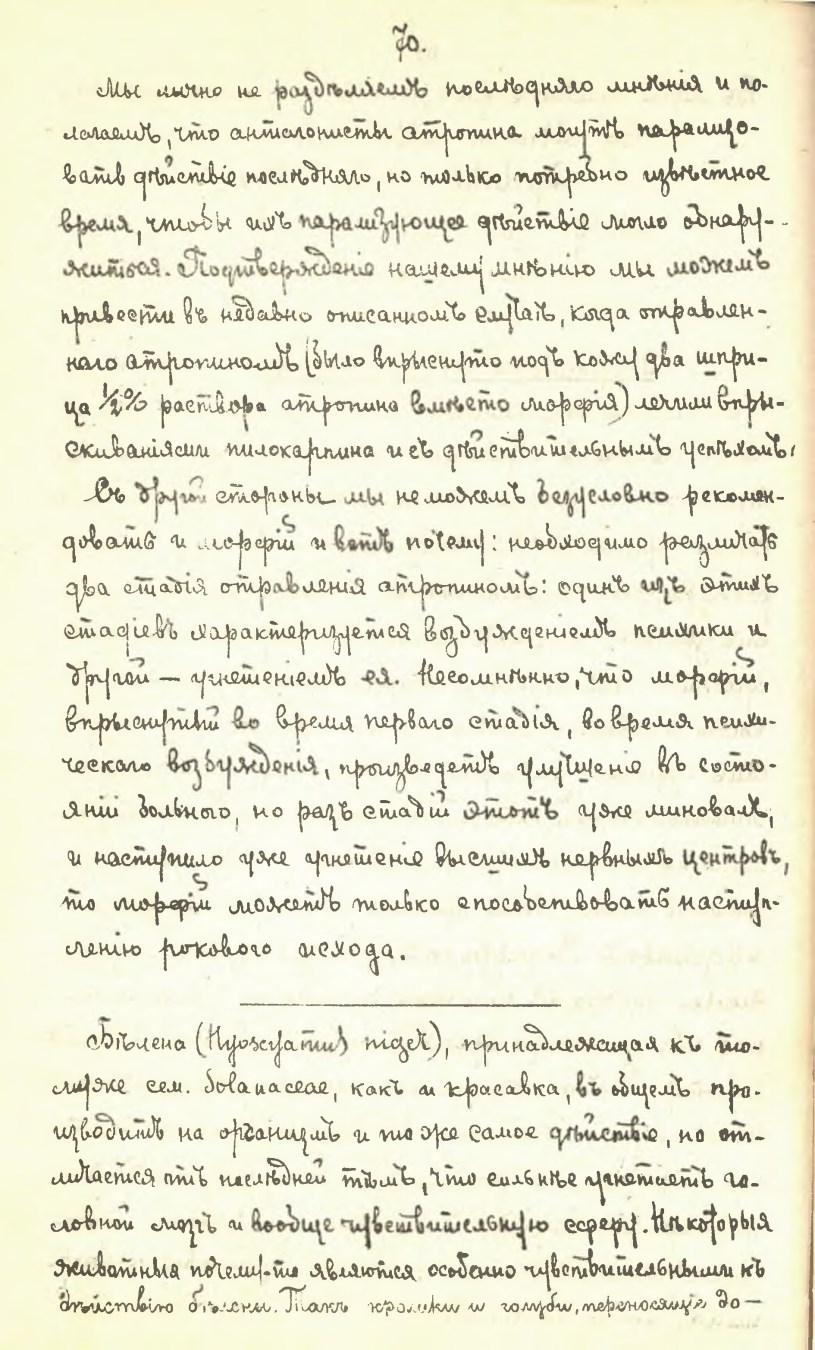 70.
Мы лично не раздѣляемъ послѣдняго мнѣнія и по-
лагаемъ, что антагонисты атропина могутъ парализо-
вать дѣйствіе послѣдняго, но только потребно извѣстное
время, чтобы ихъ парализующее дѣйствіе могло обнару-
житься. Подтвержденіе нашему мнѣнію мы можемъ
привести въ недавно описанномъ случаѣ, когда отравлен-
наго атропиномъ (было впрыснуто подъ кожу два шпри-
ца ½% раствора атропина вмѣсто морфія) лечили впры-
скиваніями пилокарпина и съ дѣйствительнымъ успѣхомъ.
Съ другой стороны мы не можемъ безусловно рекомен-
довать и морфій и вотъ почему: необходимо различать
два стадія отравленія атропиномъ: одинъ изъ этихъ
стадіевъ характеризуется возбужденіемъ психики и
другой — угнетеніемъ ея. Несомнѣнно, что морфій,
впрыснутый во время перваго стадія, во время психи-
ческаго возбужденія, произведетъ улучшеніе въ состо-
яніи больного, но разъ стадій этотъ уже миновалъ,
и наступило уже угнетеніе высшихъ нервныхъ центровъ,
то морфій можетъ только способствовать насту-
пленію рокового исхода.
Бѣлена (Hyoscyamus niger), принадлежащая къ то-
муже сем. Solanaceae, какъ и красавка, въ общемъ про-
изводитъ на организмъ и то же самое дѣйствіе, но от-
личается отъ послѣдней тѣмъ, что сильнѣе угнетаетъ го-
ловной мозгъ и вообще чувствительную сферу. Нѣкоторыя
животныя почему-то являются особенно чувствительными къ
дѣйствію бѣлены. Такъ кролики и голуби, переносящіе до—